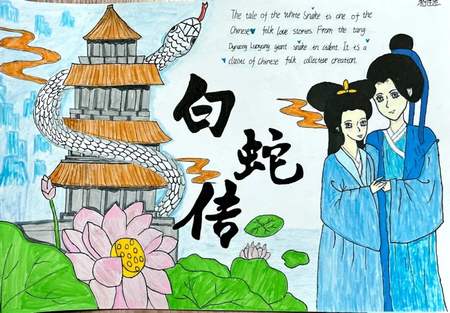 The tale of the White Snake is one of the
Chinese folk love stories. From the tang
Dynasty Luoyang giant snake in cident. It is a
classic of Chinese folk collective creation.
白
蛇
传